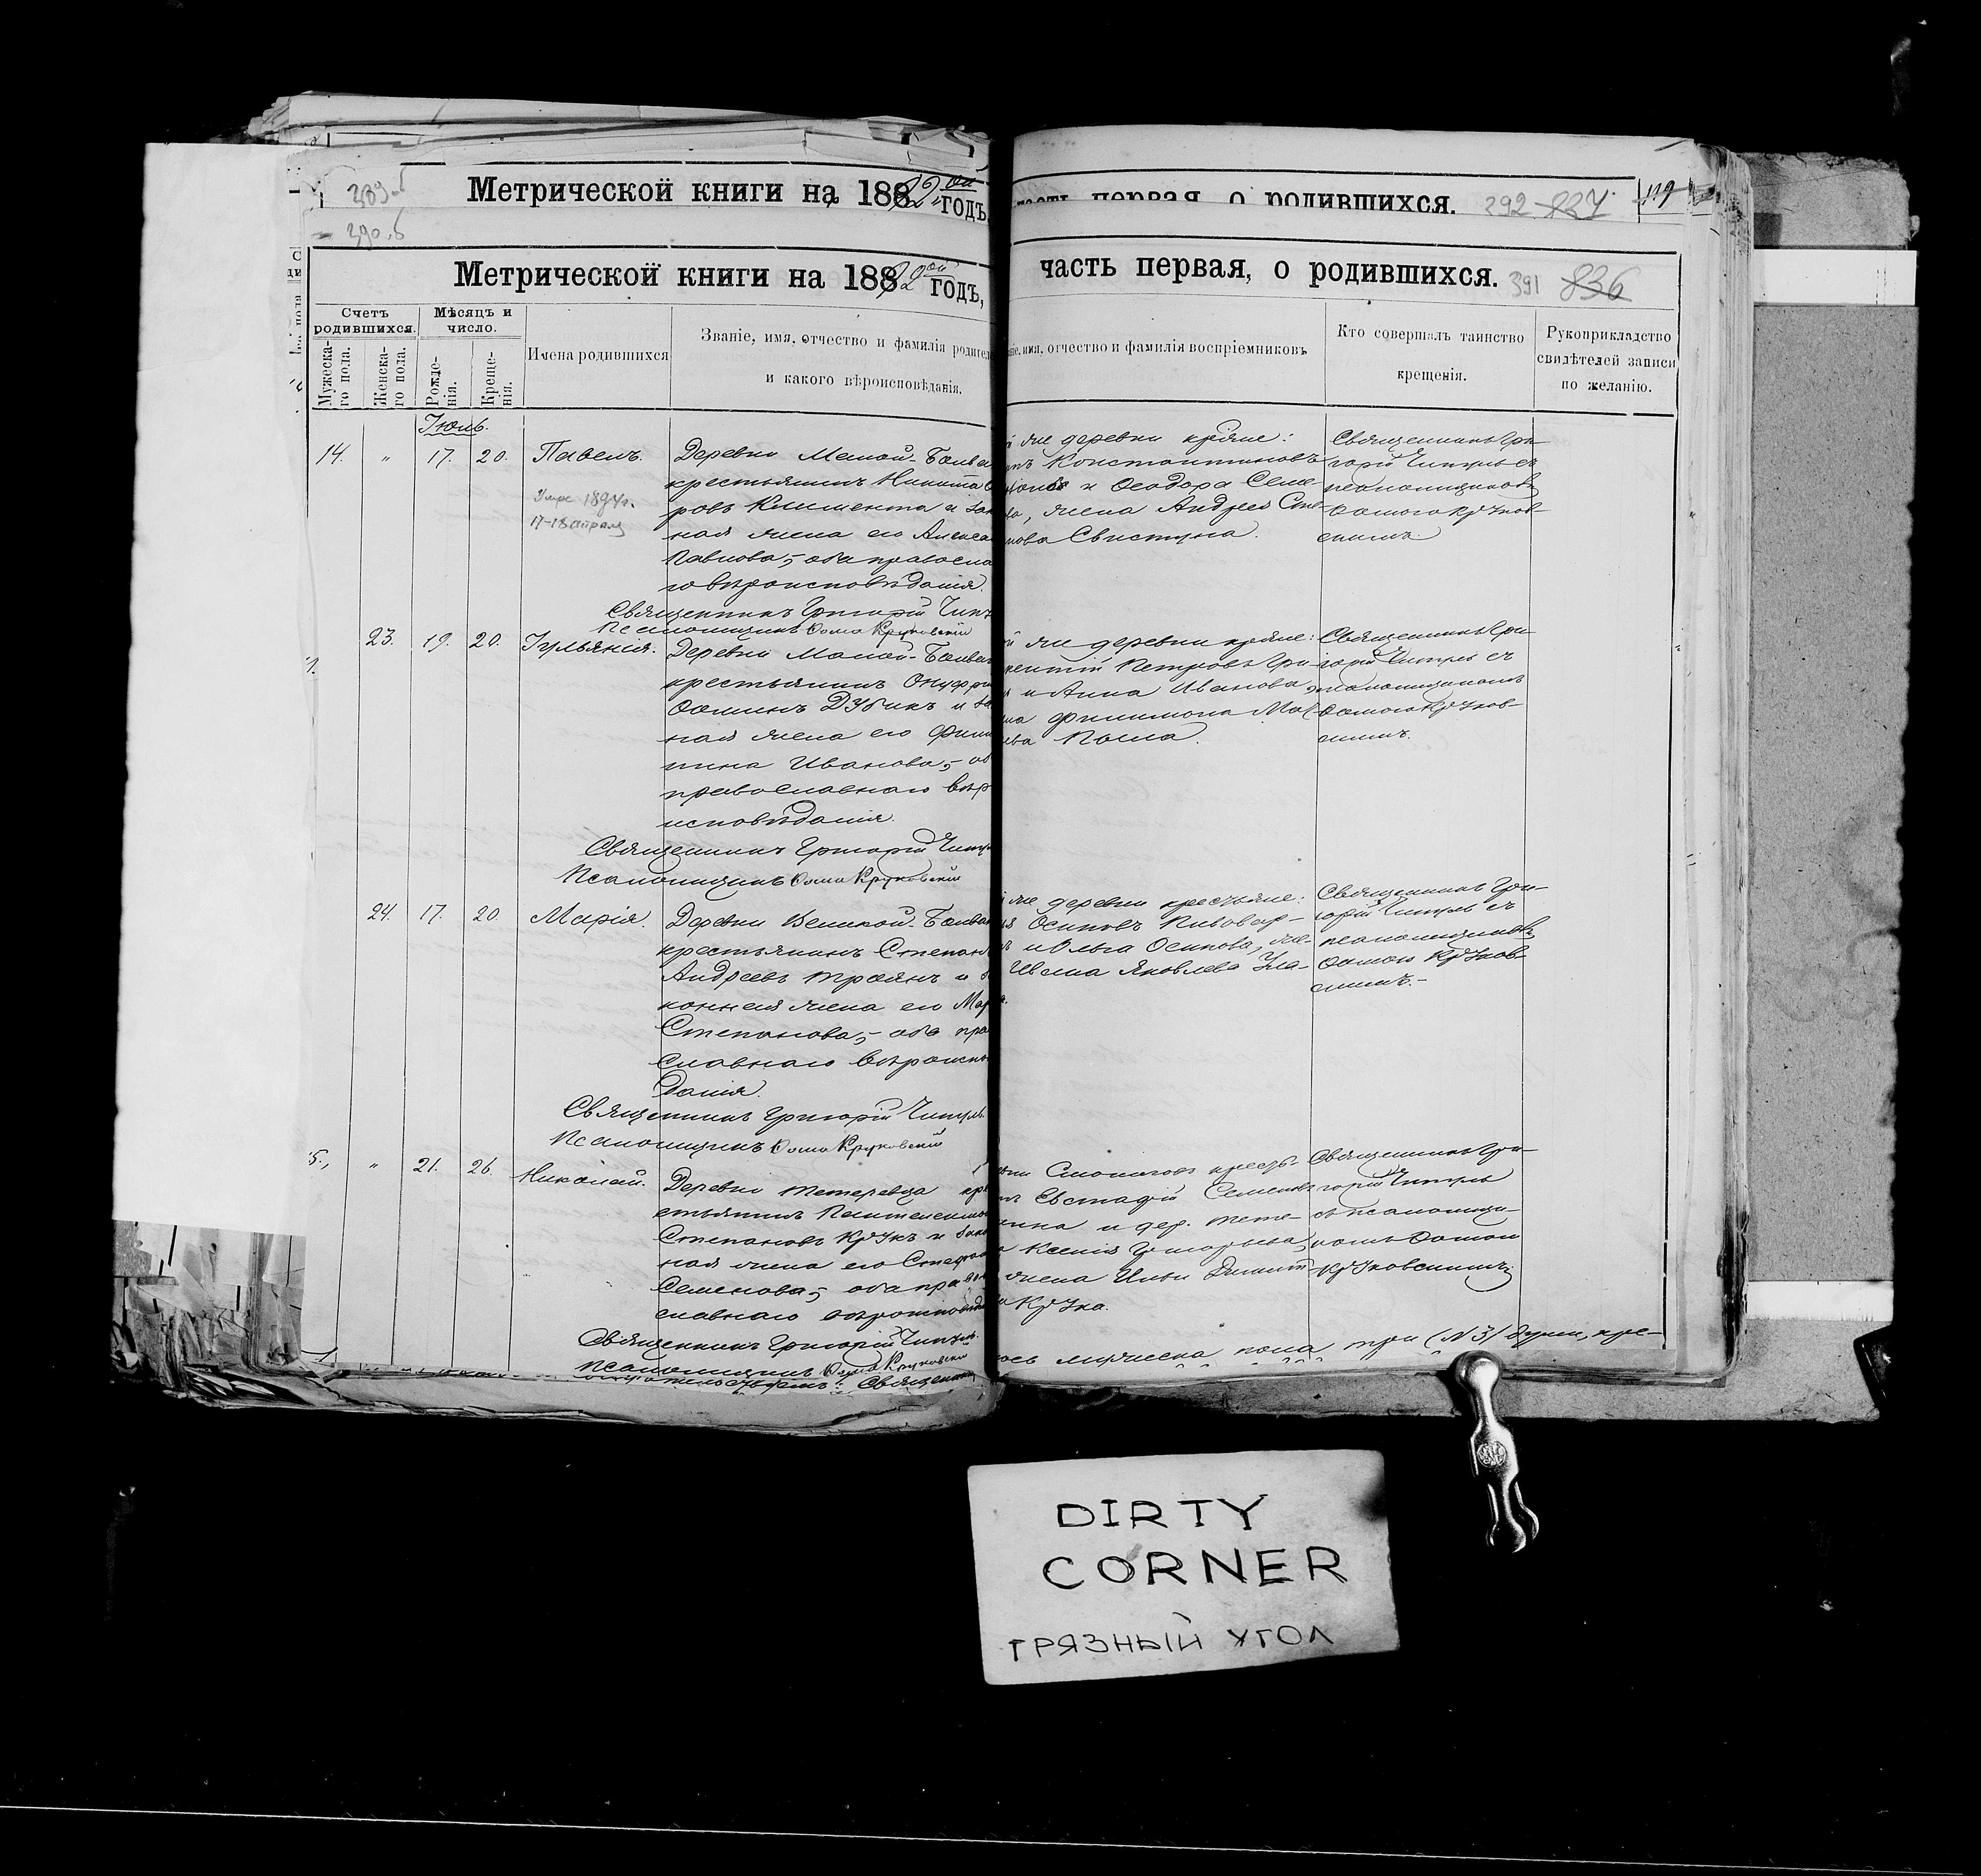 389 б
Метрической книги на 1882 ой
годъ
часть первая, о родившихся. 392 837 119
390 б
Метрической книги на 1882 ой
годъ,
часть первая, о родившихся. 391 836
Счетъ родившихся.
Мѣсяцъ и число.
Мужеска-
го пола.
Женска-
го пола.
Рожде-
нія.
Креще-
нія.
Имена родившихся
Званіе, имя, отчество и фамилія родител
и какого вѣроисповѣданія.
ніе, имя, отчество и фамилія воспріемниковъ
Кто совершалъ таинство
крещенія.
Рукоприкладство
свидѣтелей записи
по желанію.
Іюль.
14. " 17. 20. Павелъ.
Умре 1894 г.
17-18 апреля
Деревни Малой-Болва
крестьянинъ Никита
ровъ Климента и зак
ная жена его Алекса
Павлова; оба правосла
го вѣроисповѣданія.
Священникъ Григорій Чипу
Псаломщикъ Ѳома Круковскій
й же деревни кр-яне:
Константиновъ
и Ѳеодора Семе-
ва, жена Андрея Сте-
нова Свистуна.
Священникъ Гри-
горій Чипуль съ
псаломщикомъ
Ѳомою Круков-
скимъ.
23. 19. 20. Іульянія.
Деревни Малой-Болва
крестьянинъ Онуфрі
Ѳоминъ Дубикъ и за
ная жена его Фили
пина Иванова; об
православнаго вѣр
исповѣданія.
Священникъ Григорій Чипу
Псаломщикъ Ѳома Круковскій
й же деревни кр-яне:
рентій Петровъ Гри-
и Анна Иванова,
на Филимона Мат-
ѣева
Священникъ Гри-
горій Чипуль съ
псаломщикомъ
Ѳомою Круков-
скимъ.
24. 17. 20. Марія.
Деревни Великой-Болва
крестьянинъ Степан
Андреевъ Троянъ и з
конная жена его Мар
Степанова; оба пра
славнаго вѣроиспо
данія.
Священникъ Григорій Чипуль.
Псаломщикъ Ѳома Круковскій
й же деревни крестьяне:
Осиповъ Пивовар-
ъ и Ольга Осипова, же-
Ивана Яковлева
Священникъ Гри-
горій Чипуль съ
псаломщикомъ
Ѳомою Круков-
скимъ.-
5., " 21. 26. Николай.
Деревни Тетеревца кре
стьянинъ Пантелеймо
Степановъ Крукъ и зако
ная жена его Стефан
Семенова; оба право
славнаго вѣроисповѣд
Священникъ Григорій Чипуль.
Псаломщикъ Ѳома Круковскій
вни кресть-
Евстафій Семеновъ
и дер. Тете-
Ксенія Григорьева,
жена Ильи Димит-
а Крука.
Священникъ Гри-
горій Чипуль
съ псаломщи-
комъ Ѳомою
Круковскимъ.
ось мужеска пола три (N 3) души,
Священник
DIRTY
CORNER
ГРЯЗНЫЙ УГОЛ